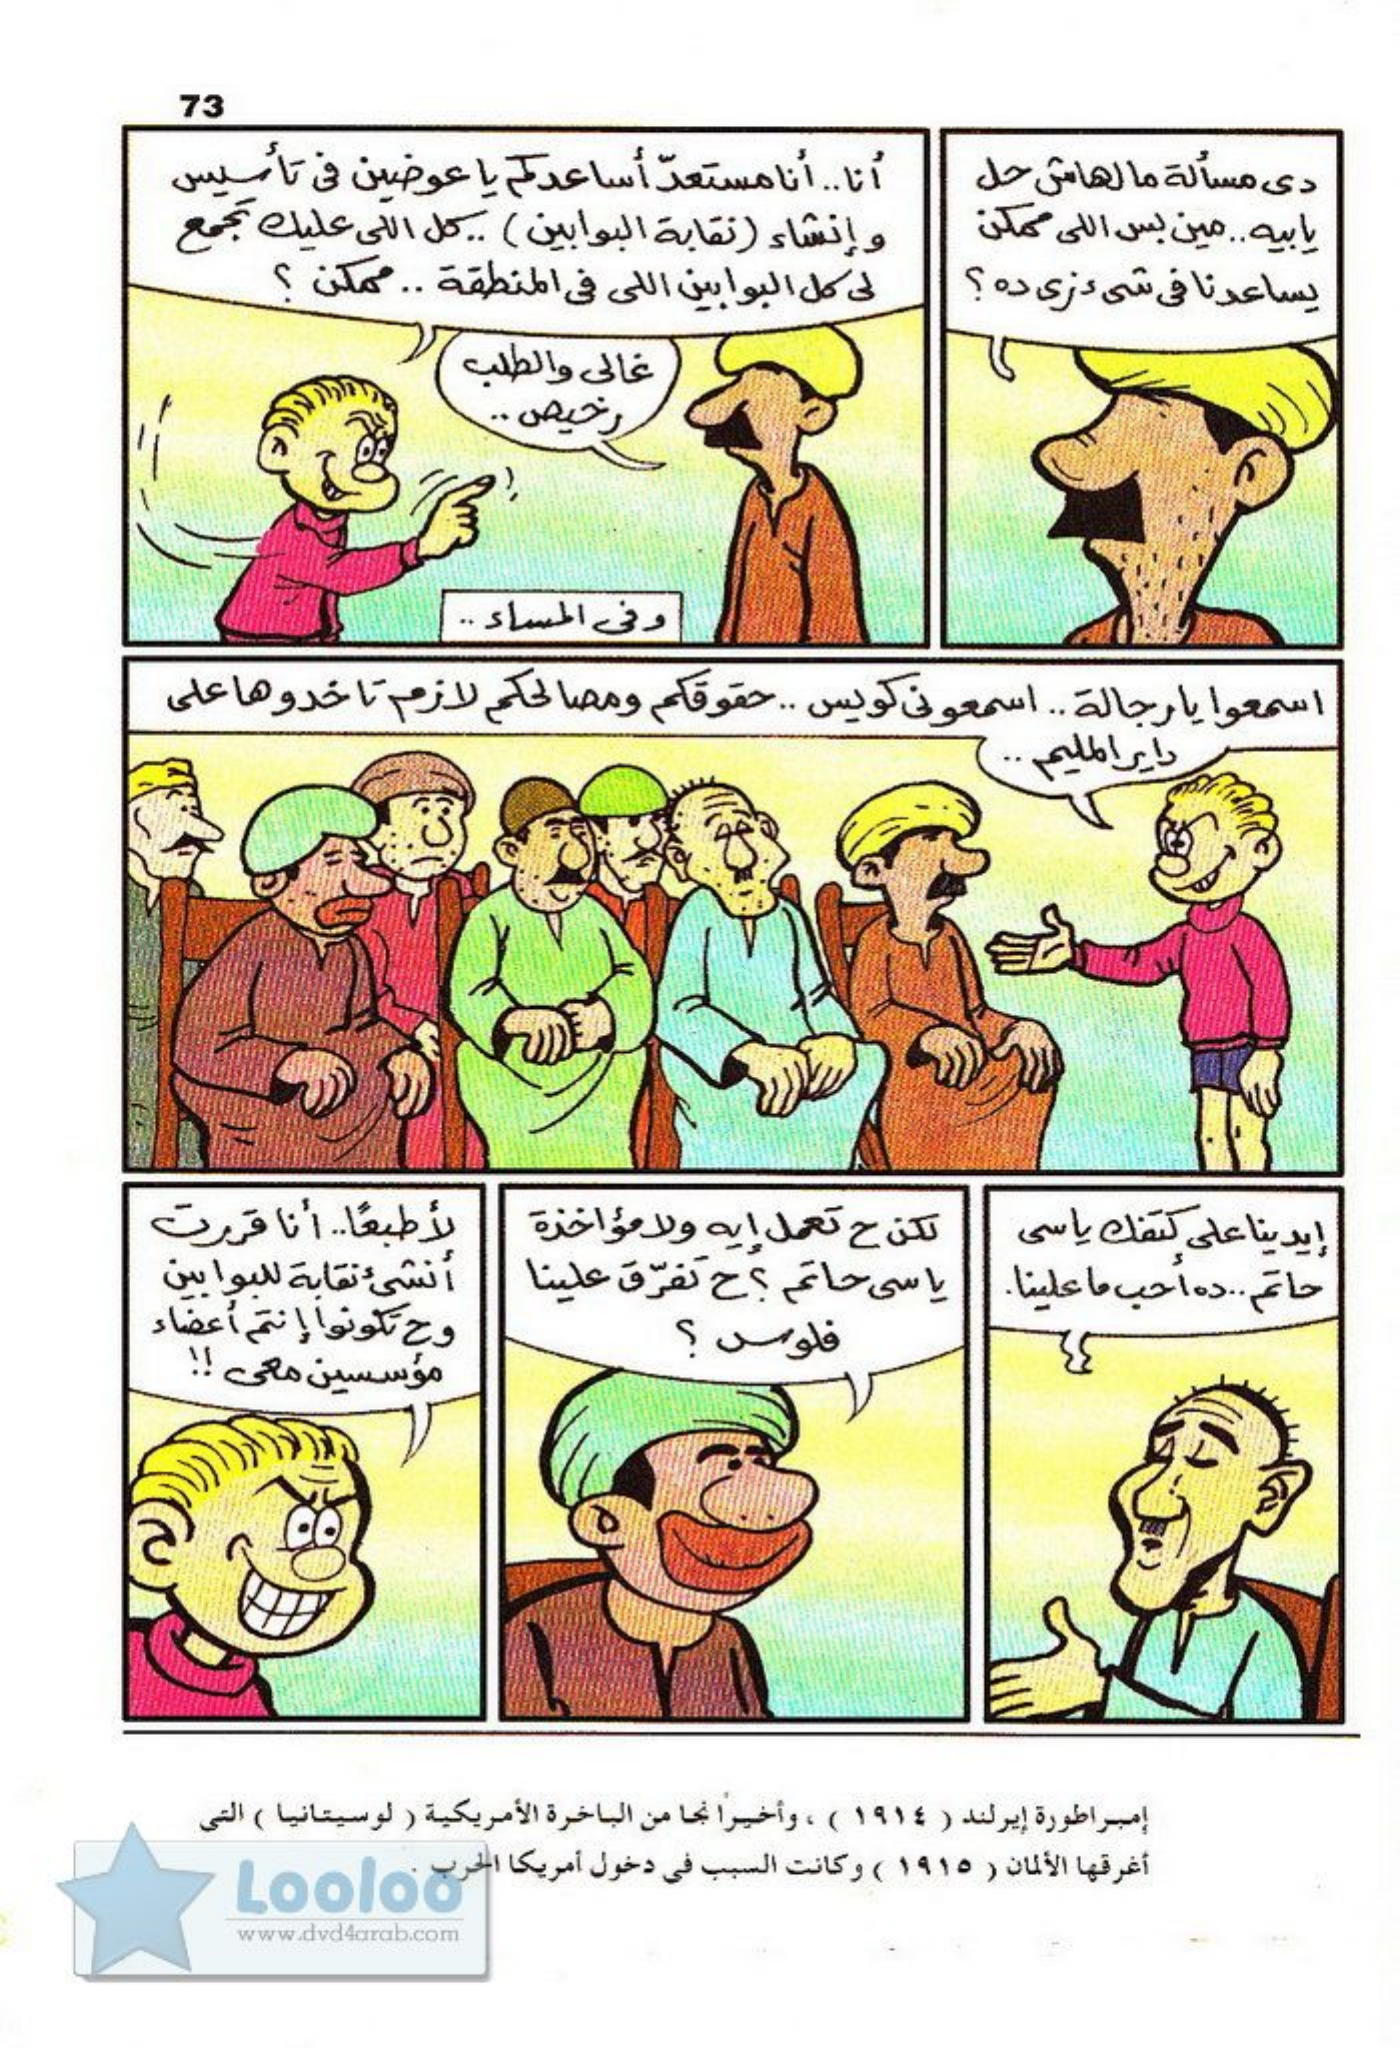 73
دى مسألة مالهاش حل
يا بيه.. مين بس اللى ممكن
يساعدنا فى شىء زى ده ؟
أنا.. أنا مستعدّ أساعدكم يا عوضين فى تأسيس
و إنشاء (نقابة البوابين) .. كل اللى عليك تجمع
لى كل البوابين اللى فى المنطقة .. ممكن ؟
غالى والطلب
رخيص ..
وفى المساء ..
اسمعوا يا رجالة .. اسمعونى كويس .. حقوقكم ومصالحكم لازم تاخدوها على
داير المليم ..
إيدينا على كتفك يا سى
حاتم .. ده أحب ما علينا.
لكن ح تعمل إيه ولا مؤاخذة
يا سى حاتم ؟ ح تفرّق علينا
فلوس ؟
لأ طبعًا.. أنا قررت
أنشئ نقابة للبوابين
وح تكونوا إنتم أعضاء
مؤسسين معى !!
إمبراطورة إيرلند ( ١٩١٤ ) ، وأخيرًا نجا من الباخرة الأمريكية ( لوسيتانيا ) التى
أغرقها الألمان ( ١٩١٥ ) وكانت السبب فى دخول أمريكا الحرب .
Looloo
www.dvd4arab.com